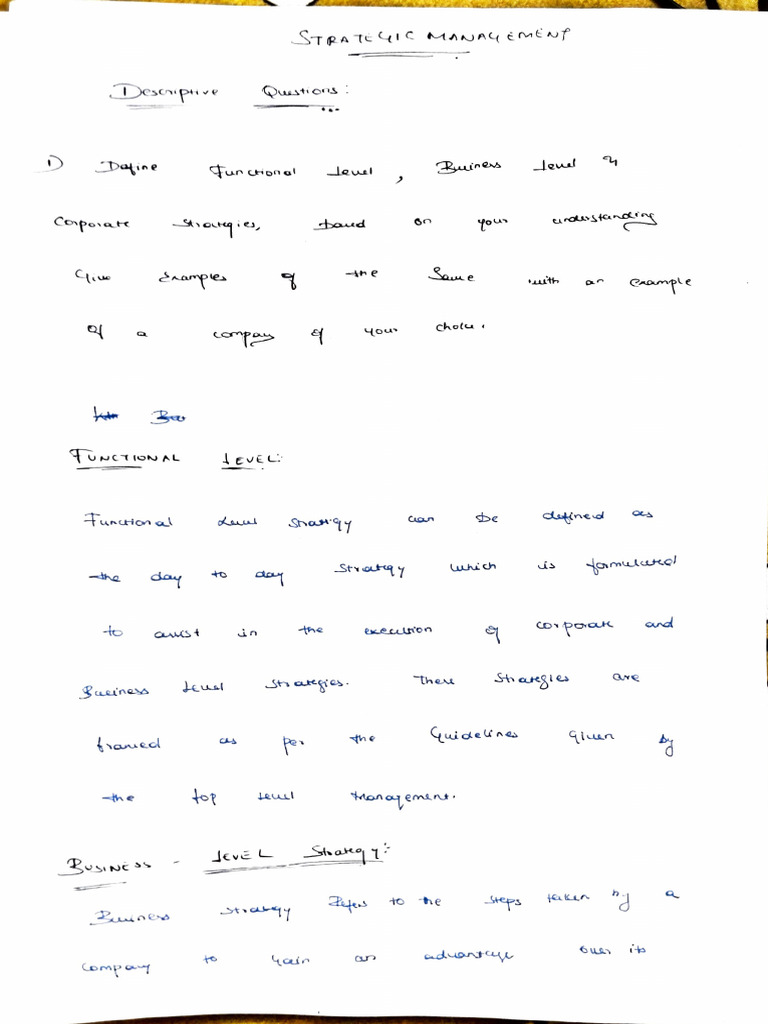 STRATEGIC MANAGEMENT
Descriptive Questions:
1) Define Functional Level, Business Level &
Corporate Strategies, based on your understanding
Give Examples of the Same with an example
of a company of your choice.
FUNCTIONAL LEVEL:
Functional Level Strategy can be defined as
the day to day Strategy which is formulated
to assist in the execution of corporate and
Business Level Strategies. These Strategies are
framed as per the Guidelines given by
the top Level Management.
BUSINESS - LEVEL Strategy:
Business Strategy Refers to the steps taken by a
company to Gain an advantage over its